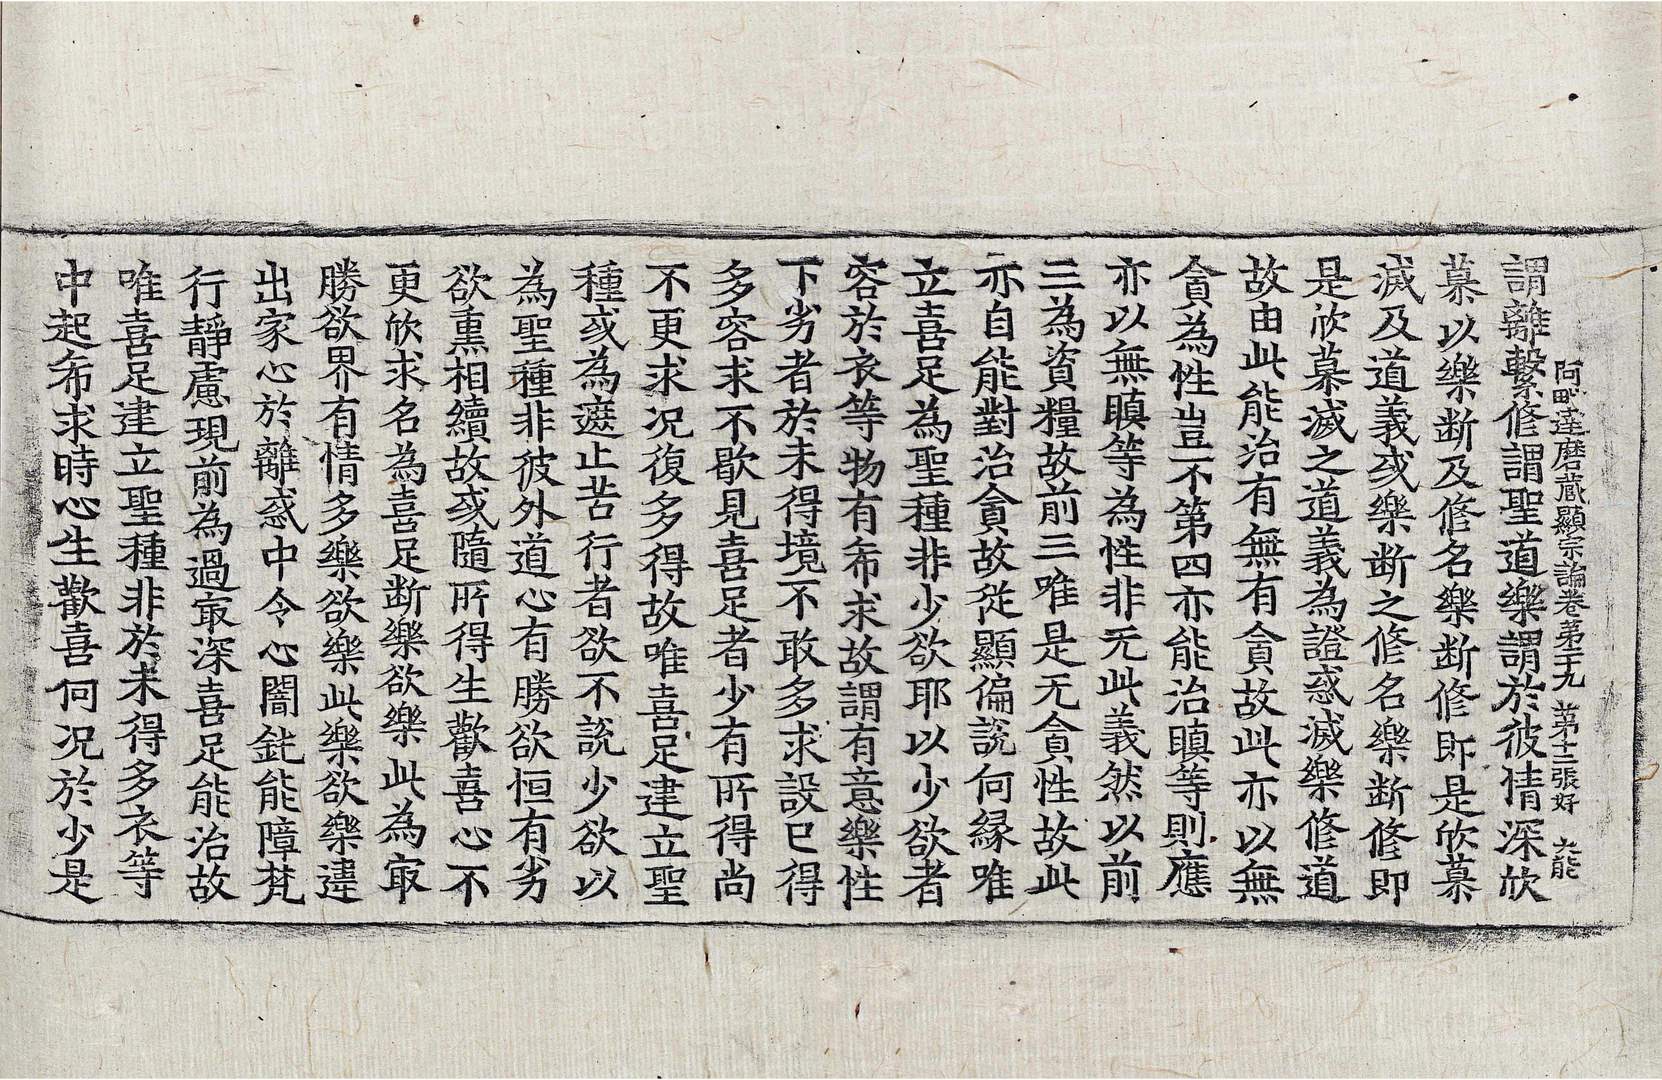 阿毗達磨藏顯宗論卷第二十九 第十二張 好
謂離繫修謂聖道樂謂於彼情深欣
慕以樂断及修名樂断修即是欣慕
滅及道義或樂断之修名樂断修即
是欣慕滅之道義為證惑滅樂修道
故由此能治有無有貪故此亦以無
貪為性豈不第四亦能治瞋等則應
亦以無瞋等為性非无此義然以前
三為資糧故前三唯是无貪性故此
亦自能對治貪故從顯偏說何緣唯
立喜足為聖種非少欲耶以少欲者
容於衣等物有希求故謂有意樂性
下劣者於未得境不敢多求設已得
多容求不歇見喜足者少有所得尚
不更求况復多得故唯喜足建立聖
種或為遮止苦行者欲不說少欲以
為聖種非彼外道心有勝欲恒有劣
欲熏相續故或隨所得生歡喜心不
更欣求名為喜足断樂欲樂此為㝡
勝欲界有情多樂欲樂此樂欲樂違
出家心於離惑中令心闇鈍能障梵
行靜慮現前為過㝡深喜足能治故
唯喜足建立聖種非於未得多衣等
中起希求時心生歡喜何况於少是